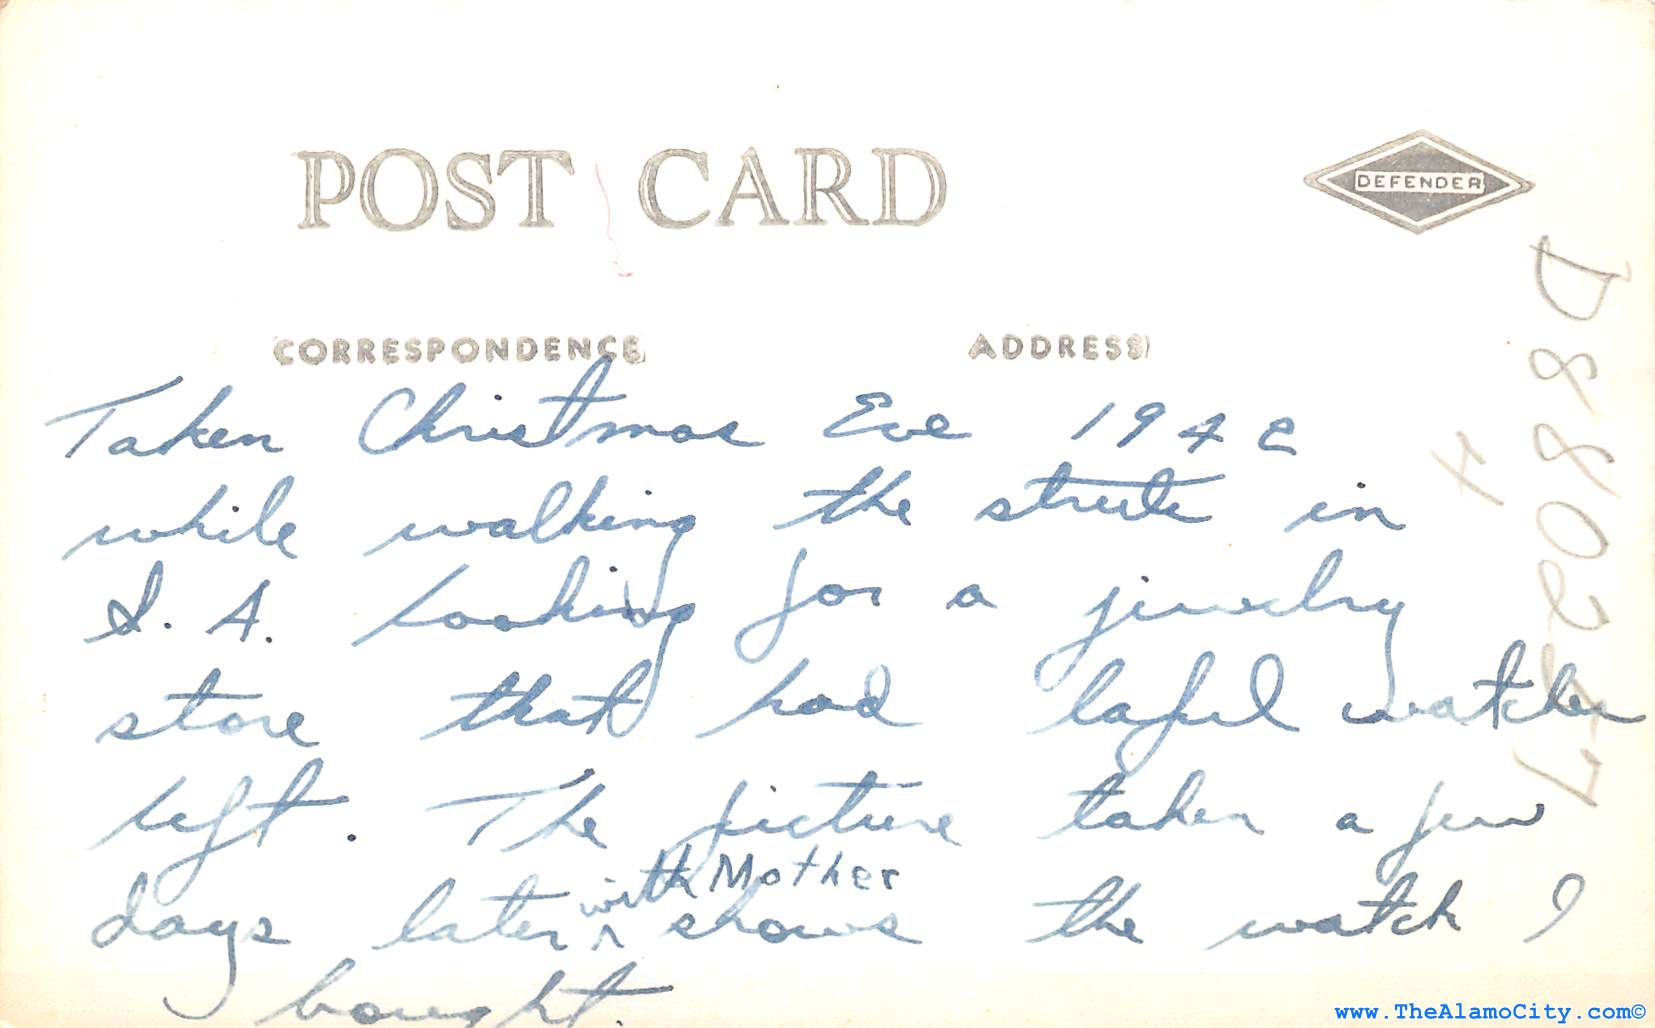 POST CARD
DEFENDER
CORRESPONDENCE
ADDRESS
Taken Christmas Eve 1942
while walking the streets in
S. A. looking for a jewelry
store that had lapel watches
left. The picture taken a few
with Mother
days later ^ shows the watch I
bought.
4
www.TheAlamoCity.com©